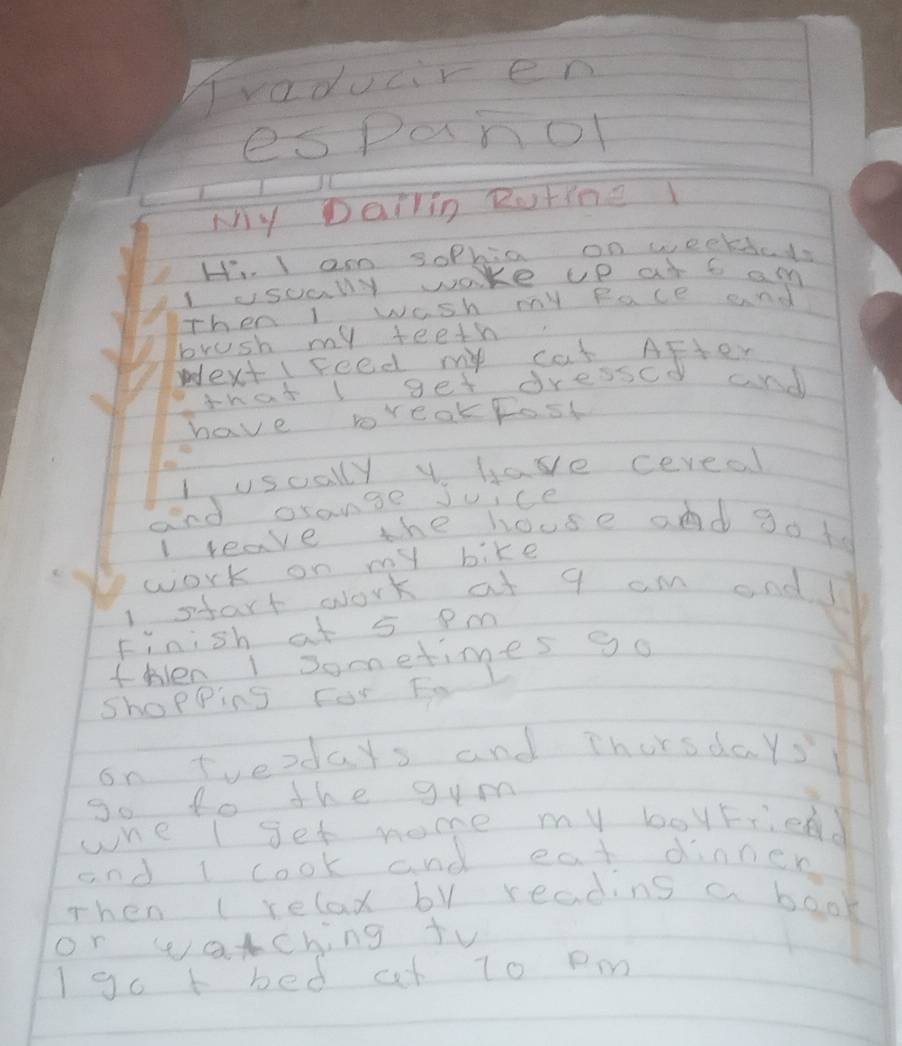 Traducir en
español
My Dailin Rutine 1
Hi.. I am sophia on weekdads
I usually wake up at 6 am
Then I wash my Face and
brush my teeth.
Next I Feed my cat AFter
that I get dressed and
have breakFast
I usually y have cereal
and orange juice
I leave the house and go to
work on my bike
I start work at 9 am and I
Finish at 5 pm
then I sometimes go
shopping For Fo
on Tuesdays and Thursdays I
go to the gym
whe I get home my boyFriend
and I cook and eat dinner
Then I relax by reading a book
or watching tv
I go t bed at 10 pm